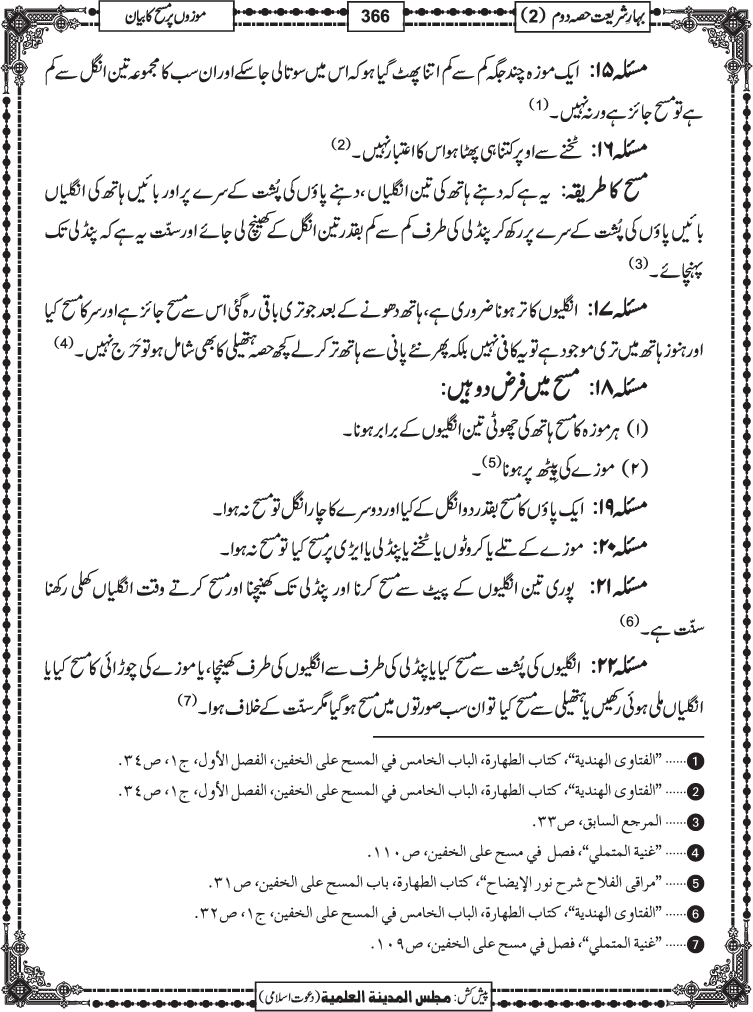 بہارِ شریعت حصہ دوم (2)
366
موزوں پر مسح کا بیان
مسئلہ ۱۵: ایک موزہ چند جگہ کم سے کم اتنا پھٹ گیا ہو کہ اس میں سوتالی جا سکے اور ان سب کا مجموعہ تین انگل سے کم
ہے تو مسح جائز ہے ورنہ نہیں۔ (1)
مسئلہ ۱۶: ٹخنے سے اوپر کتنا ہی پھٹا ہو اس کا اعتبار نہیں۔ (2)
مسح کا طریقہ: یہ ہے کہ دہنے ہاتھ کی تین انگلیاں، دہنے پاؤں کی پُشت کے سرے پر اور بائیں ہاتھ کی انگلیاں
بائیں پاؤں کی پُشت کے سرے پر رکھ کر پنڈلی کی طرف کم سے کم بقدر تین انگل کے کھینچ لی جائے اور سنّت یہ ہے کہ پنڈلی تک
پہنچائے۔ (3)
مسئلہ ۱۷: انگلیوں کا تر ہونا ضروری ہے، ہاتھ دھونے کے بعد جو تری باقی رہ گئی اس سے مسح جائز ہے اور سر کا مسح کیا
اور ہنوز ہاتھ میں تری موجود ہے تو یہ کافی نہیں بلکہ پھر نئے پانی سے ہاتھ تر کرلے کچھ حصہ ہتھیلی کا بھی شامل ہو تو حَرَج نہیں۔ (4)
مسئلہ ۱۸: مسح میں فرض دو ہیں:
(۱) ہر موزہ کا مسح ہاتھ کی چھوٹی تین انگلیوں کے برابر ہونا۔
(۲) موزے کی پِیٹھ پر ہونا (5)۔
مسئلہ ۱۹: ایک پاؤں کا مسح بقدر دو انگل کے کیا اور دوسرے کا چار انگل تو مسح نہ ہوا۔
مسئلہ ۲۰: موزے کے تلے یا کروٹوں یا ٹخنے یا پنڈلی یا ایڑی پر مسح کیا تو مسح نہ ہوا۔
مسئلہ ۲۱: پوری تین انگلیوں کے پیٹ سے مسح کرنا اور پنڈلی تک کھینچنا اور مسح کرتے وقت انگلیاں کھلی رکھنا
سنّت ہے۔ (6)
مسئلہ ۲۲: انگلیوں کی پُشت سے مسح کیا یا پنڈلی کی طرف سے انگلیوں کی طرف کھینچا، یا موزے کی چوڑائی کا مسح کیا یا
انگلیاں ملی ہوئی رکھیں یا ہتھیلی سے مسح کیا تو ان سب صورتوں میں مسح ہوگیا مگر سنّت کے خلاف ہوا۔ (7)
1 ...... ”الفتاوی الهندية“، كتاب الطهارة، الباب الخامس في المسح على الخفين، الفصل الأول، ج۱، ص۳٤.
2 ...... ”الفتاوی الهندية“، كتاب الطهارة، الباب الخامس في المسح على الخفين، الفصل الأول، ج۱، ص۳٤.
3 ...... المرجع السابق، ص۳۳.
4 ...... ”غنية المتملي“، فصل في مسح على الخفين، ص۱۱۰.
5 ...... ”مراقی الفلاح شرح نور الإيضاح“، كتاب الطهارة، باب المسح على الخفين، ص۳۱.
6 ...... ”الفتاوی الهندية“، كتاب الطهارة، الباب الخامس في المسح على الخفين، ج۱، ص۳۲.
7 ...... ”غنية المتملي“، فصل في مسح على الخفين، ص۱۰۹.
پیش کش: مجلس المدينة العلمية (دعوت اسلامی)